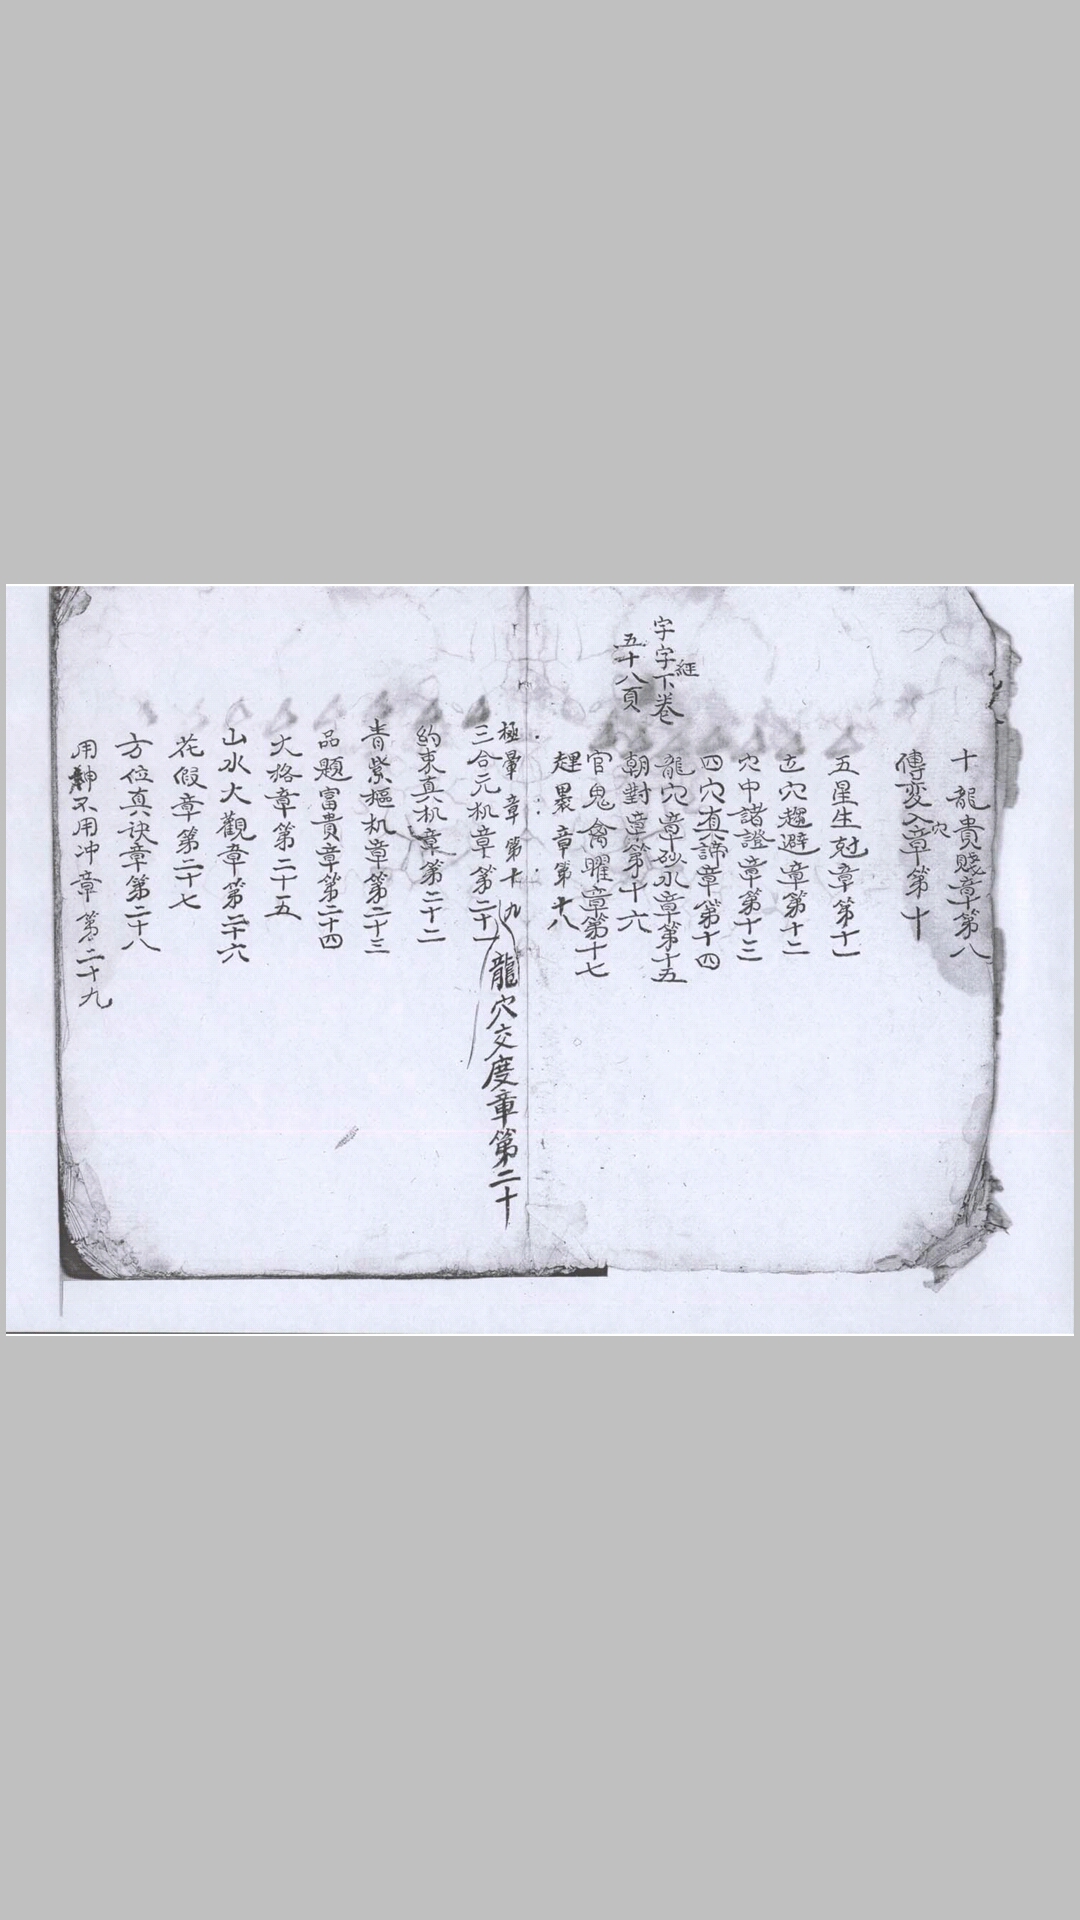 十龍貴賤章第八
傳變入穴章第十
五星生尅章第十一
立穴趨避章第十二
穴中諸證章第十三
四穴真諦章第十四
字字經下卷
龍穴章砂水章第十五
五十八頁
朝對章第十六
官鬼禽曜章第十七
章第十八
極暈章第十九
龍穴交度章第二十
三合元机章第二十一
約束真机章第二十二
青紫樞机章第二十三
品題富貴章第二十四
大格章第二十五
山水大觀章第二十六
花假章第二十七
方位真訣章第二十八
用神不用冲章第二十九